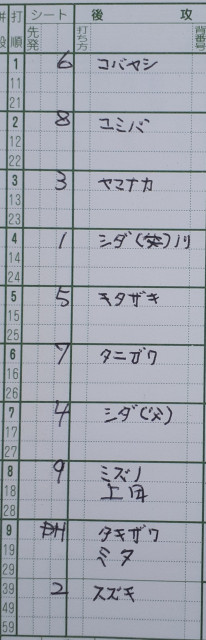 打順 シート 先発 後攻 打ち方 背番号
1 6 コバヤシ
11
21
2 8 ユミバ
12
22
3 3 ヤマナカ
13
23
4 1 シダ
14
24
5 5 キタザキ
15
25
6 7 タニガワ
16
26
7 4 シダ(父)
17
27
8 9 ミズノ
18 上田
28
9 DH タキザワ
19 ミタ
29
39 2 スズキ
49
59